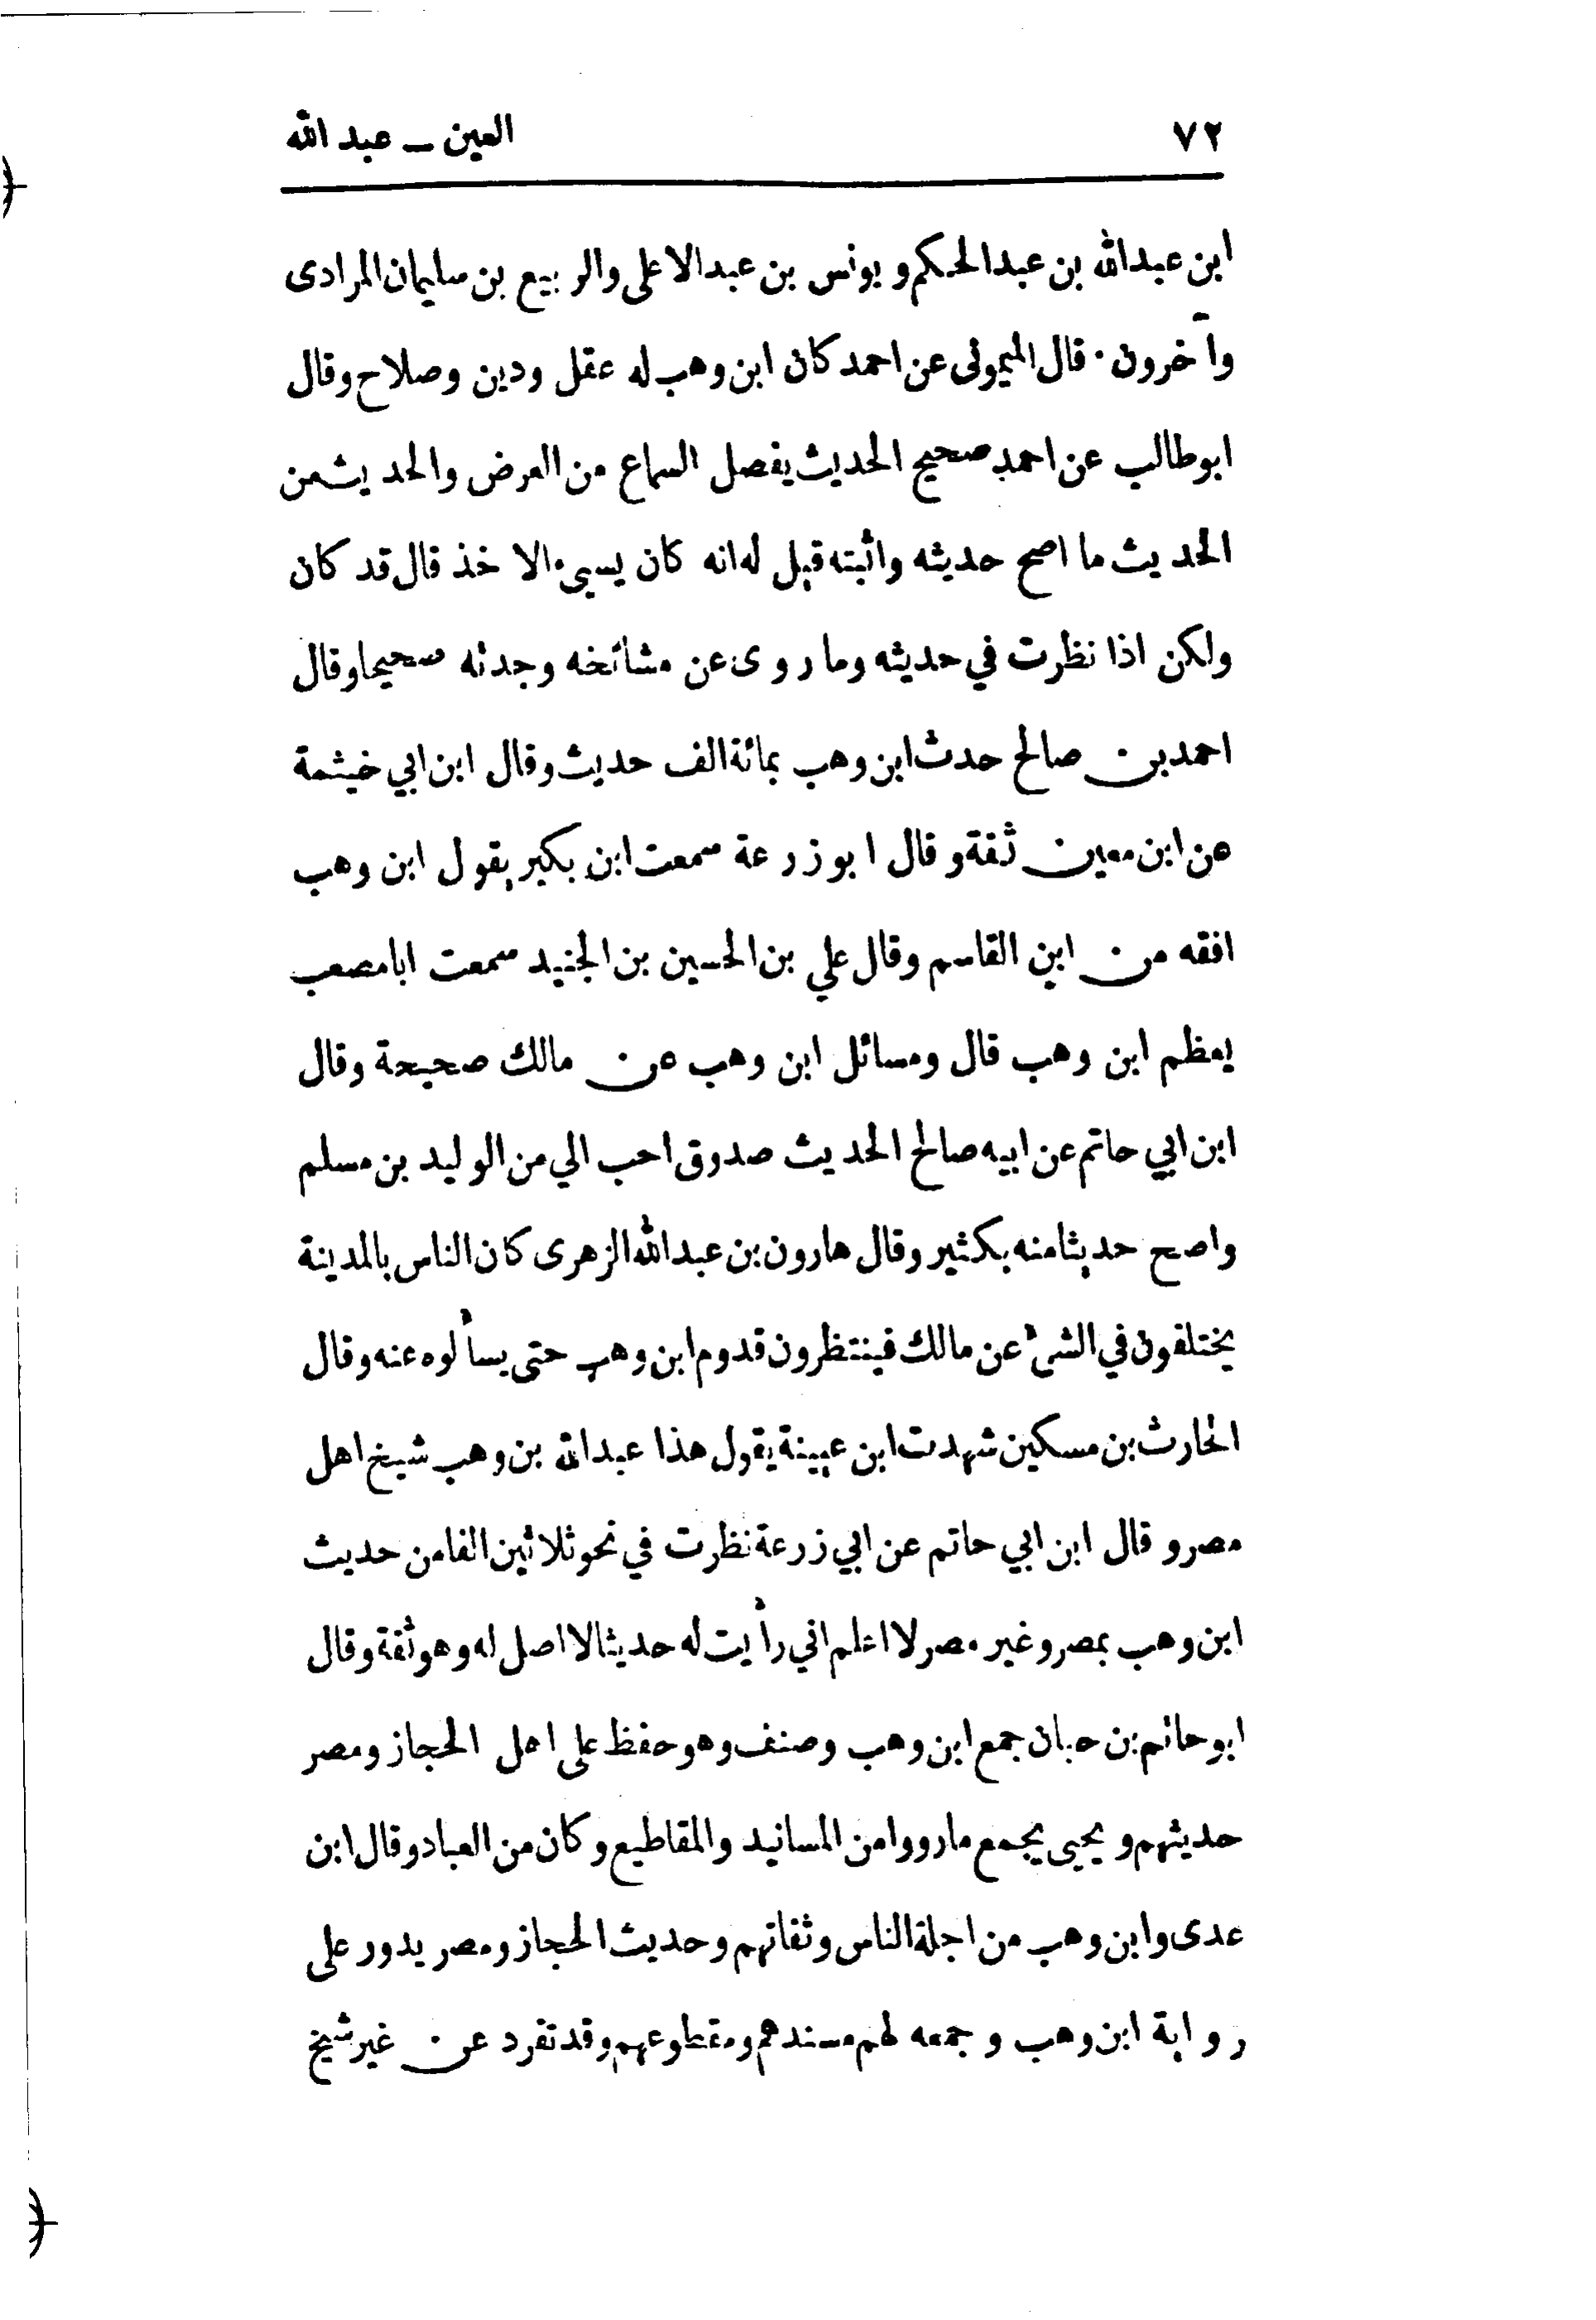 ٧٢
العين ـ عبد الله
ابن عبدالله بن عبدالحكم و يونس بن عبدالاعلى والربيع بن سليمان المرادى
وآخرون . قال الميمونى عن احمد كان ابن وهب له عقل ودين وصلاح وقال
ابوطالب عن احمد صحيح الحديث يفصل السماع من العرض والحديث من
الحديث ما اصح حديثه واثبته قيل له انه كان يسيء الاخذ قال قد كان
ولكن اذا نظرت في حديثه وما روى عن مشائخه وجدته صحيحا وقال
احمد بن صالح حدث ابن وهب بمائة الف حديث وقال ابن ابي خيثمة
عن ابن معين ثقة وقال ابوزرعة سمعت ابن بكير يقول ابن وهب
افقه من ابن القاسم وقال علي بن الحسين بن الجنيد سمعت ابا مصعب
يعظم ابن وهب قال ومسائل ابن وهب عن مالك صحيحة وقال
ابن ابي حاتم عن ابيه صالح الحديث صدوق احب الي من الوليد بن مسلم
واصح حديثا منه بكثير وقال هارون بن عبدالله الزهرى كان الناس بالمدينة
يختلفون في الشئ عن مالك فينتظرون قدوم ابن وهب حتى يسألوه عنه وقال
الحارث بن مسكين شهدت ابن عيينة يقول هذا عبدالله بن وهب شيخ اهل
مصر وقال ابن ابي حاتم عن ابي زرعة نظرت في نحو ثلاثين الفا من حديث
ابن وهب بمصر وغير مصر لا اعلم اني رأيت له حديثا لا اصل له وهو ثقة وقال
ابو حاتم بن حبان جمع ابن وهب وصنف وهو حفظ على اهل الحجاز ومصر
حديثهم و يحيى يجمع ما رووا من المسانيد والمقاطيع وكان من العباد وقال ابن
عدى وابن وهب من اجلة الناس وثقاتهم وحديث الحجاز ومصر يدور على
رواية ابن وهب وجمعه لهم مسندهم ومقطوعهم وقد تفرد عن غير شيخ